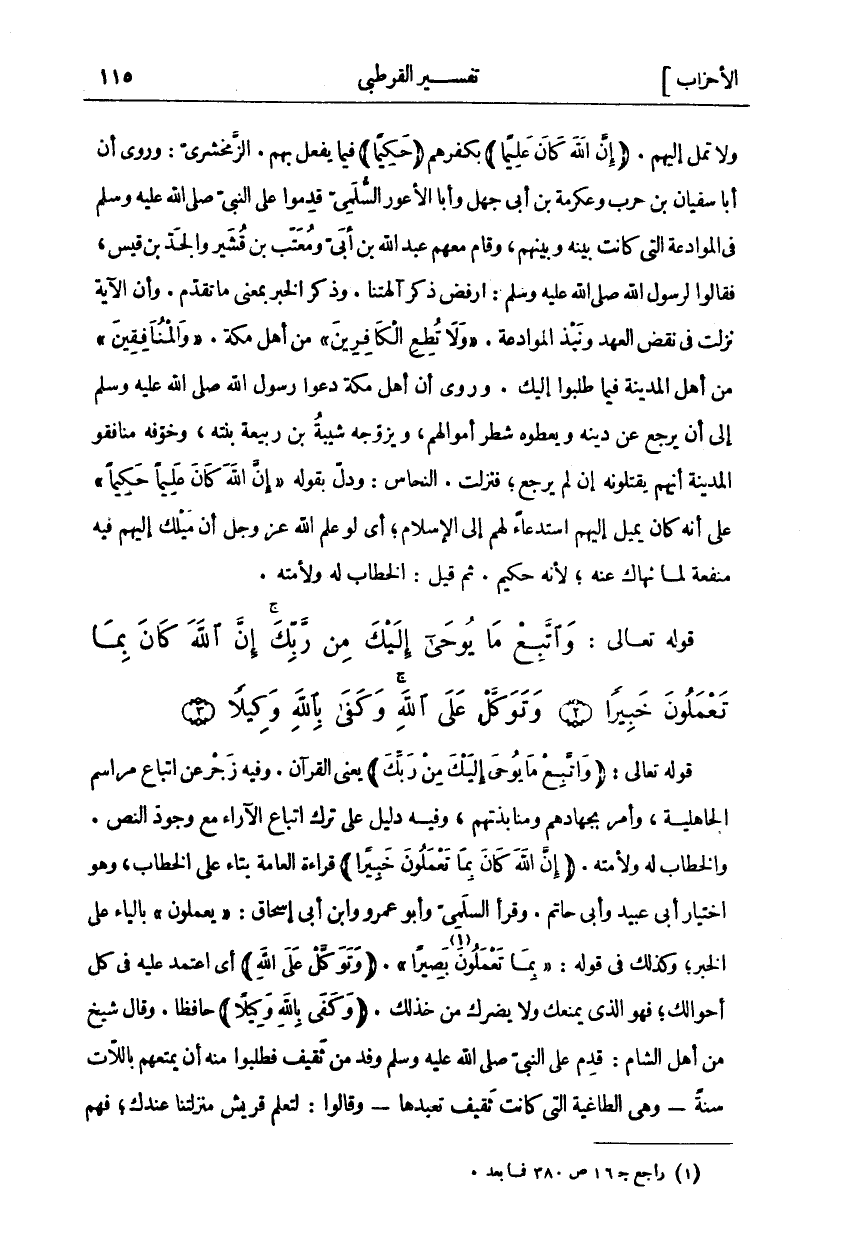 الأحزاب ] تفســـير القرطبى ١١٥
ولا تمل إليهم . ﴿ إِنَّ اللهَ كَانَ عَلِيمًا ﴾ بكفرهم ﴿حَكِيمًا﴾ فيما يفعل بهم . الزَّمخشرىّ : وروى أن
أبا سفيان بن حرب وعكرمة بن أبى جهل وأبا الأعور السُّلَمِىّ قدِموا على النبىّ صلى الله عليه وسلم
فى الموادعة التى كانت بينه وبينهم، وقام معهم عبد الله بن أُبَىّ ومُعَتّب بن قُشَير والجَدّ بن قيس،
فقالوا لرسول الله صلى الله عليه وسلم : ارفض ذكر آلهتنا . وذكر الخبر بمعنى ما تقدّم . وأن الآية
نزلت فى نقض العهد ونَبْذ الموادعة . «وَلَا تُطِعِ الْكَافِرِينَ» من أهل مكة . « وَالْمُنَافِقِينَ »
من أهل المدينة فيما طلبوا إليك . وروى أن أهل مكة دعوا رسول الله صلى الله عليه وسلم
إلى أن يرجع عن دينه ويعطوه شطر أموالهم، ويزوّجه شيبةُ بن ربيعة بنته ، وخوّفه منافقو
المدينة أنهم يقتلونه إن لم يرجع؛ فنزلت . النحاس : ودلّ بقوله « إِنَّ اللَّهَ كَانَ عَلِيماً حَكِيماً »
على أنه كان يميل إليهم استدعاءً لهم إلى الإسلام؛ أى لو علم الله عز وجل أن مَيْلك إليهم فيه
منفعة لمــا نهاك عنه ؛ لأنه حكيم . ثم قيل : الخطاب له ولأمته .
قوله تعــالى : وَٱتَّبِعْ مَا يُوحَىٰٓ إِلَيْكَ مِن رَّبِّكَ ۚ إِنَّ ٱللَّهَ كَانَ بِمَا
تَعْمَلُونَ خَبِيرًا ﴿٢﴾ وَتَوَكَّلْ عَلَى ٱللَّهِ ۚ وَكَفَىٰ بِٱللَّهِ وَكِيلًا ﴿٣﴾
قوله تعالى : ﴿ وَاتَّبِعْ مَا يُوحَى إِلَيْكَ مِنْ رَبِّكَ ﴾ يعنى القرآن . وفيه زَجْر عن اتباع مراسم
الجاهليــة ، وأمر بجهادهم ومنابذتهم ، وفيــه دليل على ترك اتباع الآراء مع وجود النص .
والخطاب له ولأمته . ﴿ إِنَّ اللهَ كَانَ بِمَا تَعْمَلُونَ خَبِيرًا ﴾ قراءة العامة بتاء على الخطاب، وهو
اختيار أبى عبيد وأبى حاتم . وقرأ السلَمىّ وأبو عمرو وابن أبى إسحاق : « يعملون » بالياء على
الخبر؛ وكذلك فى قوله : « بِمَـا تَعْمَلُونَ بَصِيرًا » (١) . ﴿ وَتَوَكَّلْ عَلَى اللهِ ﴾ أى اعتمد عليه فى كل
أحوالك؛ فهو الذى يمنعك ولا يضرك من خذلك . ﴿ وَكَفَى بِاللهِ وَكِيلًا ﴾ حافظا . وقال شيخ
من أهل الشام : قدِم على النبىّ صلى الله عليه وسلم وفد من ثَقيف فطلبوا منه أن يمتعهم باللّات
سنةً — وهى الطاغية التى كانت ثَقيف تعبدها — وقالوا : لتعلم قريش منزلتنا عندك؛ فهم
(١) راجع جـ ١٦ ص ٣٨٠ فــا بعد .